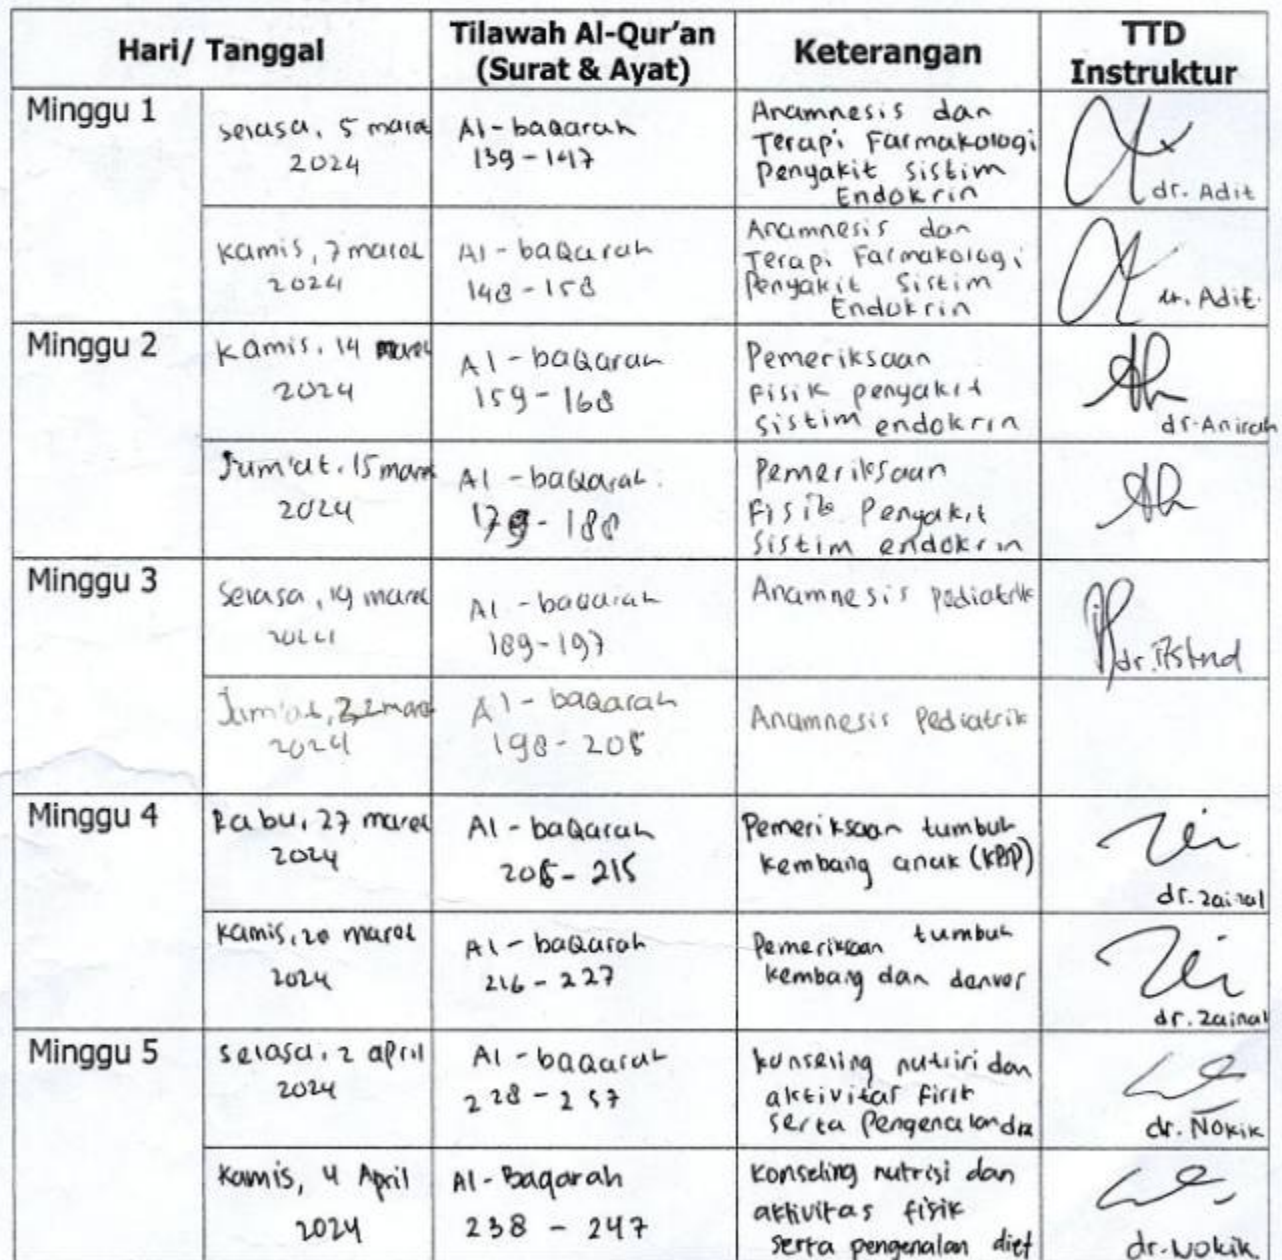 Hari/ Tanggal
Tilawah Al-Qur'an
(Surat & Ayat)
Keterangan
TTD
Instruktur
Minggu 1
selasa, 5 maret
2024
Al-baqarah
139-147
Anamnesis dan
Terapi Farmakologi
Penyakit sistim
Endokrin
dr. Adit
Kamis, 7 maret
2024
Al-baqarah
148-158
Anamnesis dan
Terapi Farmakologi
Penyakit Sistim
Endokrin
dr. Adit.
Minggu 2
Kamis, 14 maret
2024
Al-baqarah
159-168
Pemeriksaan
Fisik penyakit
sistim endokrin
dr. Anirah
Jum'at, 15 maret
2024
Al-baqarah
179-188
Pemeriksaan
Fisik Penyakit
Sistim endokrin
Minggu 3
Selasa, 19 maret
2024
Al-baqarah
189-197
Anamnesis pediatrik
Jum'at, 22 maret
2024
Al-baqarah
Anamnesis Pediatrik
Minggu 4
Rabu, 27 maret
2024
Al-baqarah
Pemeriksaan tumbuh
kembang anak (KPSP)
dr. zainal
Kamis, 28 maret
2024
Al-baqarah
216-227
Pemeriksaan tumbuh
kembang dan denver
dr. Zainal
Minggu 5
selasa, 2 april
2024
Al-baqarah
konseling nutrisi dan
aktivitas fisik
serta Pengenalan
dr. Nokik
Kamis, 4 April
2024
Al-Baqarah
238 - 247
konseling nutrisi dan
aktivitas fisik
serta pengenalan diet
dr. Nokik